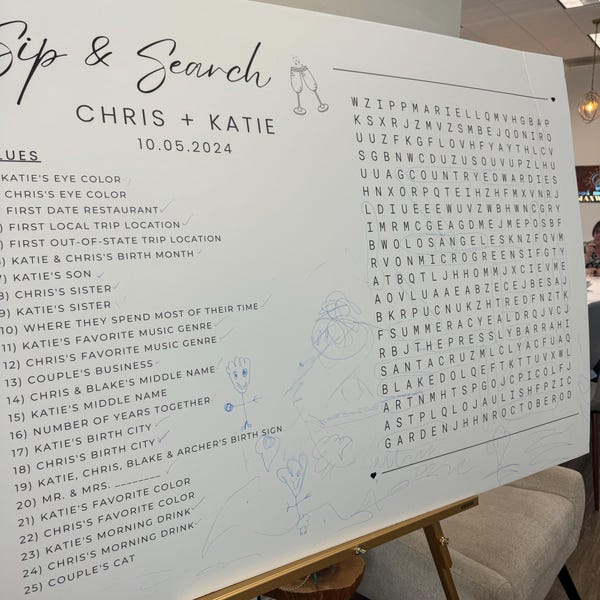 Sip & Search
CHRIS + KATIE
10.05.2024
LUES
KATIE'S EYE COLOR
CHRIS'S EYE COLOR
FIRST DATE RESTAURANT
) FIRST LOCAL TRIP LOCATION
) FIRST OUT-OF-STATE TRIP LOCATION
) KATIE & CHRIS'S BIRTH MONTH
7) KATIE'S SON
8) CHRIS'S SISTER
9) KATIE'S SISTER
10) WHERE THEY SPEND MOST OF THEIR TIME
11) KATIE'S FAVORITE MUSIC GENRE
12) CHRIS'S FAVORITE MUSIC GENRE
13) COUPLE'S BUSINESS
14) CHRIS & BLAKE'S MIDDLE NAME
15) KATIE'S MIDDLE NAME
16) NUMBER OF YEARS TOGETHER
17) KATIE'S BIRTH CITY
18) CHRIS'S BIRTH CITY
19) KATIE, CHRIS, BLAKE & ARCHER'S BIRTH SIGN
20) MR. & MRS. ________
21) KATIE'S FAVORITE COLOR
22) CHRIS'S FAVORITE COLOR
23) KATIE'S MORNING DRINK
24) CHRIS'S MORNING DRINK
25) COUPLE'S CAT
WZIPPMARIELLQMVHGBAP
KSXRJZMVZSMBEJQONIRO
UUZFKGFLOVHFYAYTHLCV
SGBNWCDUZUSOUVUPZLHU
UUAGCOUNTRYEDWARDIES
HNXORPQTEIHZHFMXVNRJ
LDIUEEEWUVZWBHWNCGRY
IMRMCGEAGDMEJMEPOSBF
BWOLOSANGELESKNZFQVM
RVONMICROGREENSIFGTY
ATBQTLJHHOMMJXCIEVME
AOVLUAAEABZECEJBESAJ
BKRPUCNUKZHTREDFNZTK
FSUMMERACYEALDRQJVCJ
RBJTHEPRESSLYBARRAHI
SANTACRUZMLCLYACFUAQ
BLAKEDOLQEFTKTTUVXWL
ARTNMHTSPGOJCPICOLFJ
ASTPLQLOJAULISHFPZIC
GARDENJHHNROCTOBEROD